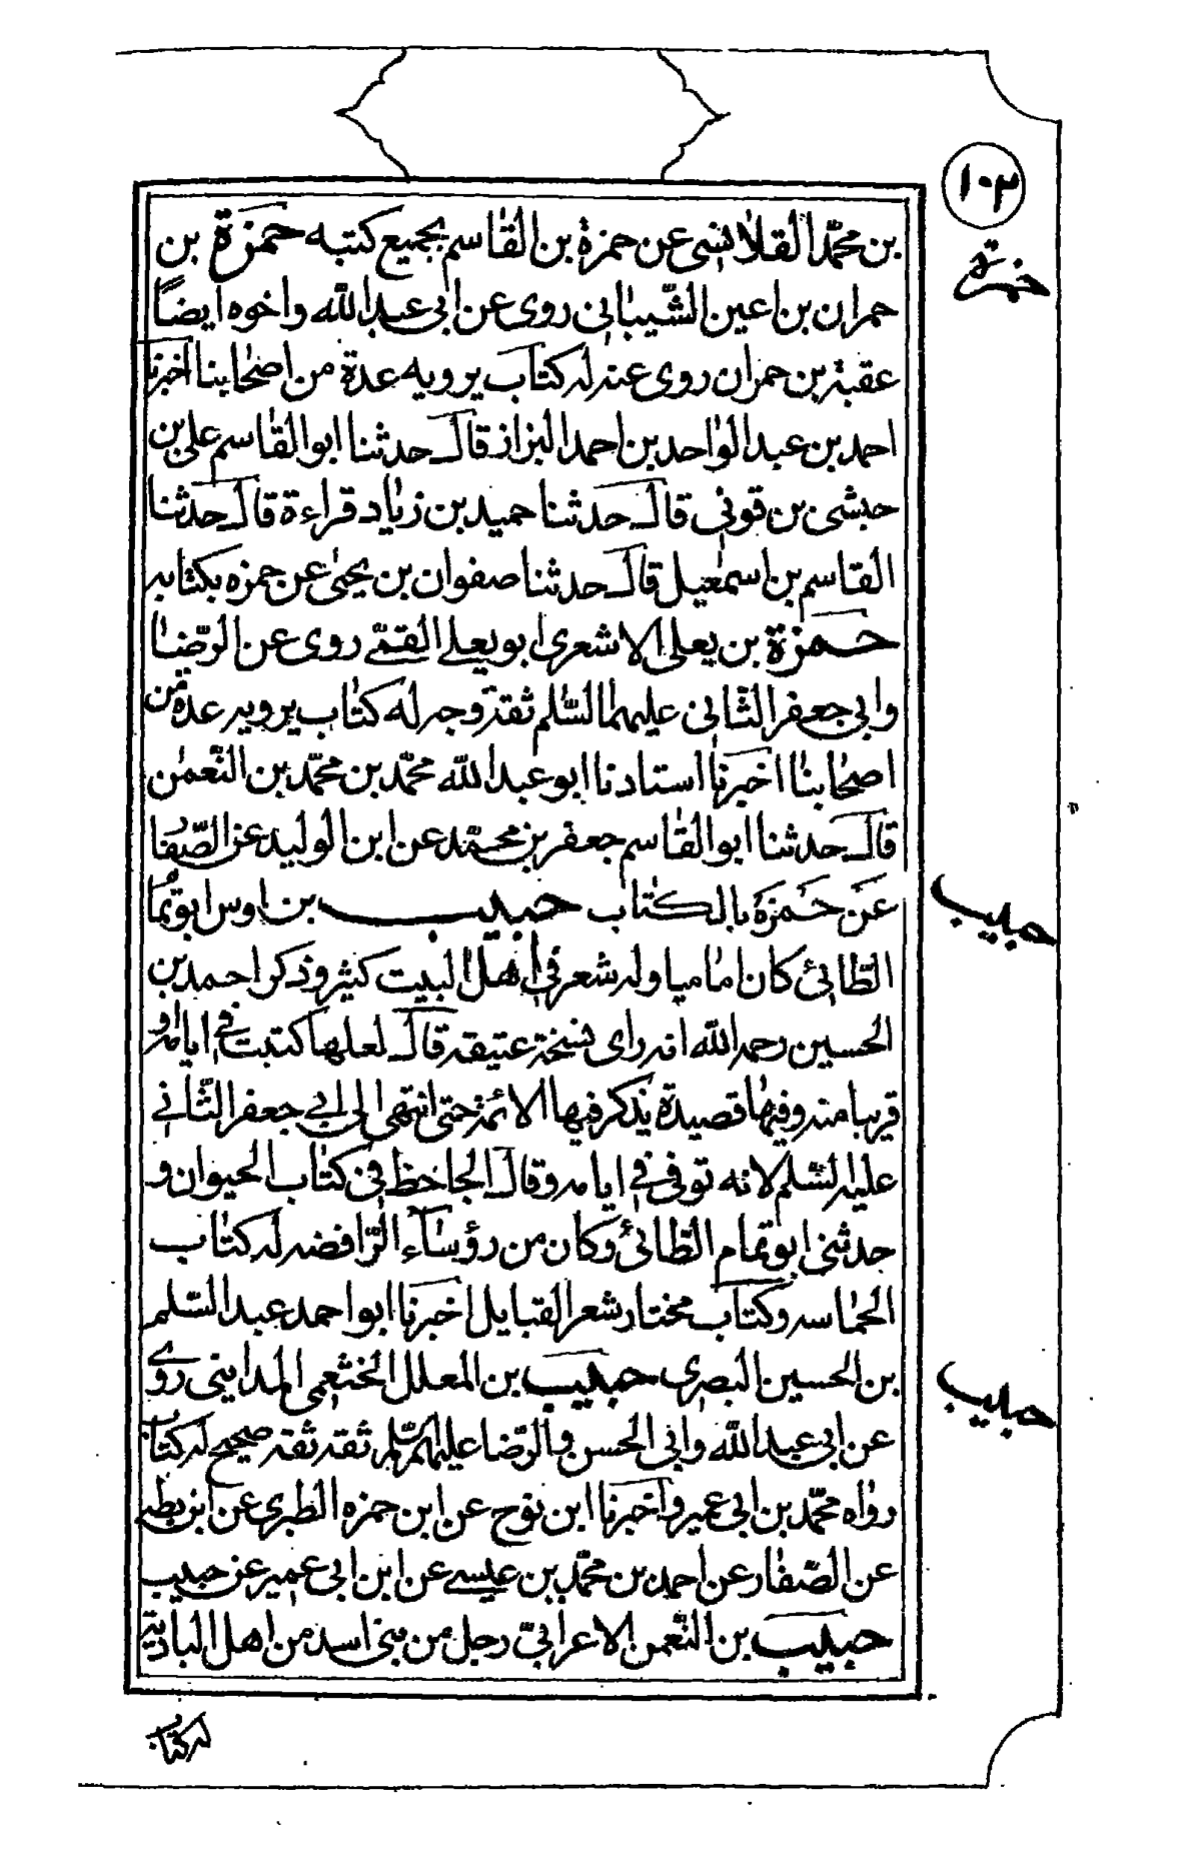 ١٠٣
حمزة
بن محمّد القلانسى عن حمزة بن القاسم بجميع كتبه حمزة بن
حمران بن اعين الشّيبانى روى عن ابى عبد اللّه واخوه ايضًا
عقبة بن حمران روى عنه له كتاب يرويه عدة من اصحابنا اخبرنا
احمد بن عبد الواحد بن احمد البزاز قال حدثنا ابو القاسم على بن
حبشى بن قونى قال حدثنا حميد بن زياد قراءة قال حدثنا
القاسم بن اسمعيل قال حدثنا صفوان بن يحيى عن حمزه بكتابه
حمزة بن يعلى الاشعرى ابو يعلى القمّى روى عن الرّضا
وابى جعفر الثّانى عليهما السّلم ثقة وجه له كتاب يرويه عدة من
اصحابنا اخبرنا استادنا ابو عبد اللّه محمّد بن محمّد بن النّعمن
قال حدثنا ابو القاسم جعفر بن محمّد عن ابن الوليد عن الصّفا
عَن حَمزَة بالكتاب حبيب بن اوس ابو تما
حبيب
الطّائىّ كان اماميا وله شعر فى اهل البيت كثير وذكر احمد بن
الحسين رحمه اللّه انه راى نسخة عتيقة قال لعلها كتبت فى ايامه او
قريبا منه وفيها قصيدة يذكر فيها الائمة حتى انتهى الى ابى جعفر الثّانى
عليه السّلم لانه توفى فى ايامه وقال الجاحظ فى كتاب الحيوان و
حدثنى ابو تمام الطّائىّ وكان من رؤسآء الرّافضه له كتاب
الحماسه وكتاب مختار شعر القبايل اخبرنا ابو احمد عبد السّلم
بن الحسين البصرى حبيب بن المعلل الخثعمى المداينى روى
حبيب
عن ابى عبد اللّه وابى الحسن والرّضا عليهم السّلم ثقه ثقه صحيح له كتاب
رواه محمّد بن ابى عمير واخبرنا ابن نوح عن ابن حمزه الطبرى عن ابن بطه
عن الصّفار عن احمد بن محمّد بن عيسى عن ابن ابى عمير عن حبيب
حبيب بن النّعمن الاعرابىّ رجل من بنى اسد من اهل البادية
له كتاب